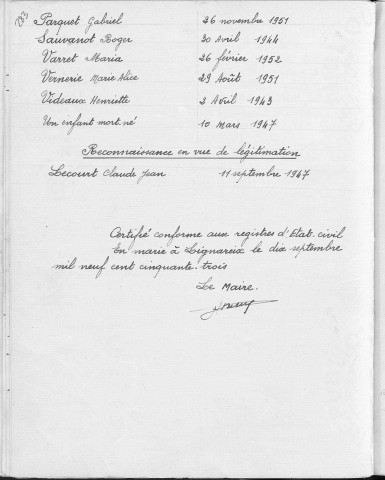 Parquet Gabriel 26 novembre 1951
Sauvanot Roger 30 Avril 1944
Varret Maria 26 février 1952
Vernerie Marie Alice 29 Août 1951
Videaux Henriette 2 Avril 1943
Un enfant mort-né 10 mars 1947
Reconnaissance en vue de légitimation
Lecourt Claude Jean 11 septembre 1947
Certifié conforme aux registres d'Etat-civil
En mairie à Lignareix le dix septembre
mil neuf cent cinquante-trois
Le Maire.